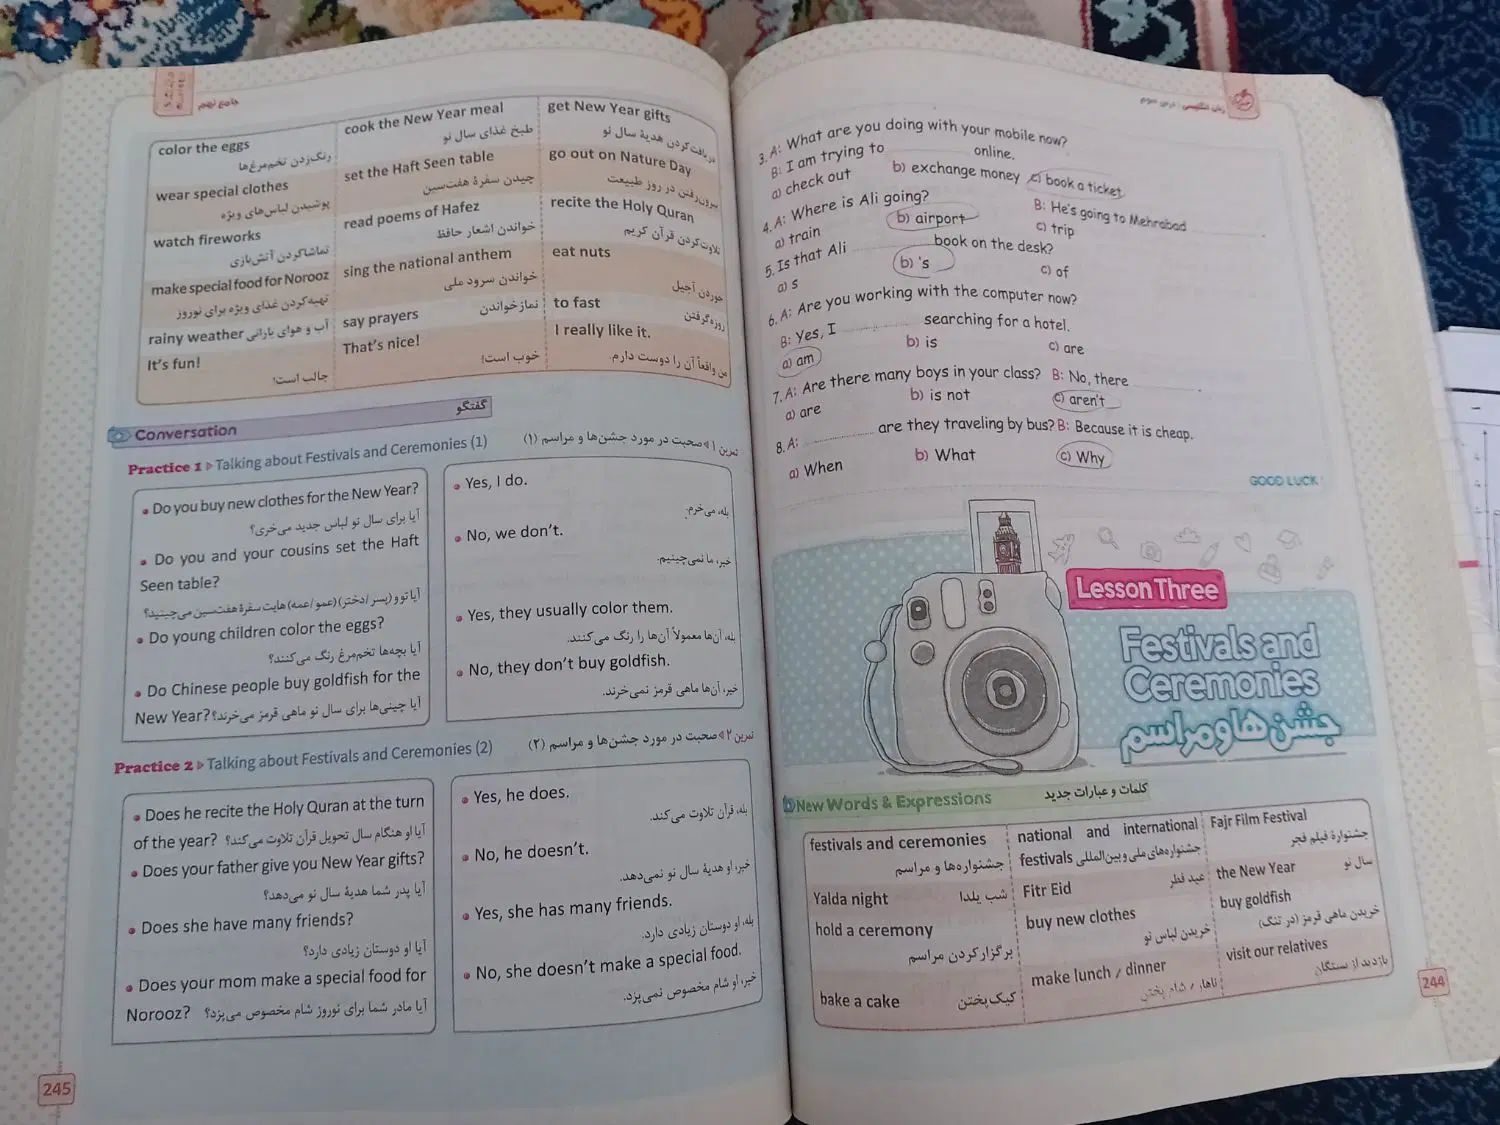 جامع نهم
color the eggs
رنگ‌زدن تخم‌مرغ‌ها
cook the New Year meal
طبخ غذای سال نو
get New Year gifts
دریافت‌کردن هدیهٔ سال نو
wear special clothes
پوشیدن لباس‌های ویژه
set the Haft Seen table
چیدن سفرهٔ هفت‌سین
go out on Nature Day
بیرون‌رفتن در روز طبیعت
watch fireworks
تماشاکردن آتش‌بازی
read poems of Hafez
خواندن اشعار حافظ
recite the Holy Quran
تلاوت‌کردن قرآن کریم
make special food for Norooz
تهیه‌کردن غذای ویژه برای نوروز
sing the national anthem
خواندن سرود ملی
eat nuts
خوردن آجیل
rainy weather آب و هوای بارانی
say prayers نمازخواندن
to fast
روزه‌گرفتن
It's fun!
جالب است!
That's nice!
خوب است!
I really like it.
من واقعاً آن را دوست دارم.
Conversation
گفتگو
Practice 1 Talking about Festivals and Ceremonies (1)
تمرین ۱ صحبت در مورد جشن‌ها و مراسم (۱)
• Do you buy new clothes for the New Year?
آیا برای سال نو لباس جدید می‌خری؟
• Do you and your cousins set the Haft
Seen table?
آیا تو و (پسر /دختر) (عمو /عمه) هایت سفرهٔ هفت‌سین می‌چینید؟
• Do young children color the eggs?
آیا بچه‌ها تخم‌مرغ رنگ می‌کنند؟
• Do Chinese people buy goldfish for the
New Year? آیا چینی‌ها برای سال نو ماهی قرمز می‌خرند؟
• Yes, I do.
بله، می‌خرم.
• No, we don't.
خیر، ما نمی‌چینیم.
• Yes, they usually color them.
بله، آن‌ها معمولاً آن‌ها را رنگ می‌کنند.
• No, they don't buy goldfish.
خیر، آن‌ها ماهی قرمز نمی‌خرند.
Practice 2 Talking about Festivals and Ceremonies (2)
تمرین ۲ صحبت در مورد جشن‌ها و مراسم (۲)
• Does he recite the Holy Quran at the turn
of the year? آیا او هنگام سال تحویل قرآن تلاوت می‌کند؟
• Does your father give you New Year gifts?
آیا پدر شما هدیهٔ سال نو می‌دهد؟
• Does she have many friends?
آیا او دوستان زیادی دارد؟
• Does your mom make a special food for
Norooz? آیا مادر شما برای نوروز شام مخصوص می‌پزد؟
• Yes, he does.
بله، قرآن تلاوت می‌کند.
• No, he doesn't.
خیر، او هدیهٔ سال نو نمی‌دهد.
• Yes, she has many friends.
بله، او دوستان زیادی دارد.
• No, she doesn't make a special food.
خیر، او شام مخصوص نمی‌پزد.
245
زبان انگلیسی: درس سوم
3. A: What are you doing with your mobile now?
B: I am trying to ________ online.
a) check out b) exchange money c) book a ticket
4. A: Where is Ali going? B: He's going to Mehrabad ________.
a) train b) airport c) trip
5. Is that Ali ________ book on the desk?
a) s b) 's c) of
6. A: Are you working with the computer now?
B: Yes, I ________ searching for a hotel.
a) am b) is c) are
7. A: Are there many boys in your class? B: No, there ________.
a) are b) is not c) aren't
8. A: ________ are they traveling by bus? B: Because it is cheap.
a) When b) What c) Why
GOOD LUCK
Lesson Three
Festivals and
Ceremonies
جشن‌ها و مراسم
New Words & Expressions
کلمات و عبارات جدید
festivals and ceremonies
جشنواره‌ها و مراسم
national and international
festivals جشنواره‌های ملی و بین‌المللی
Fajr Film Festival
جشنوارهٔ فیلم فجر
Yalda night شب یلدا
Fitr Eid عید فطر
the New Year سال نو
hold a ceremony
برگزارکردن مراسم
buy new clothes
خریدن لباس نو
buy goldfish
خریدن ماهی قرمز (در تنگ)
bake a cake کیک‌پختن
make lunch / dinner
ناهار / شام پختن
visit our relatives
بازدید از بستگان
244